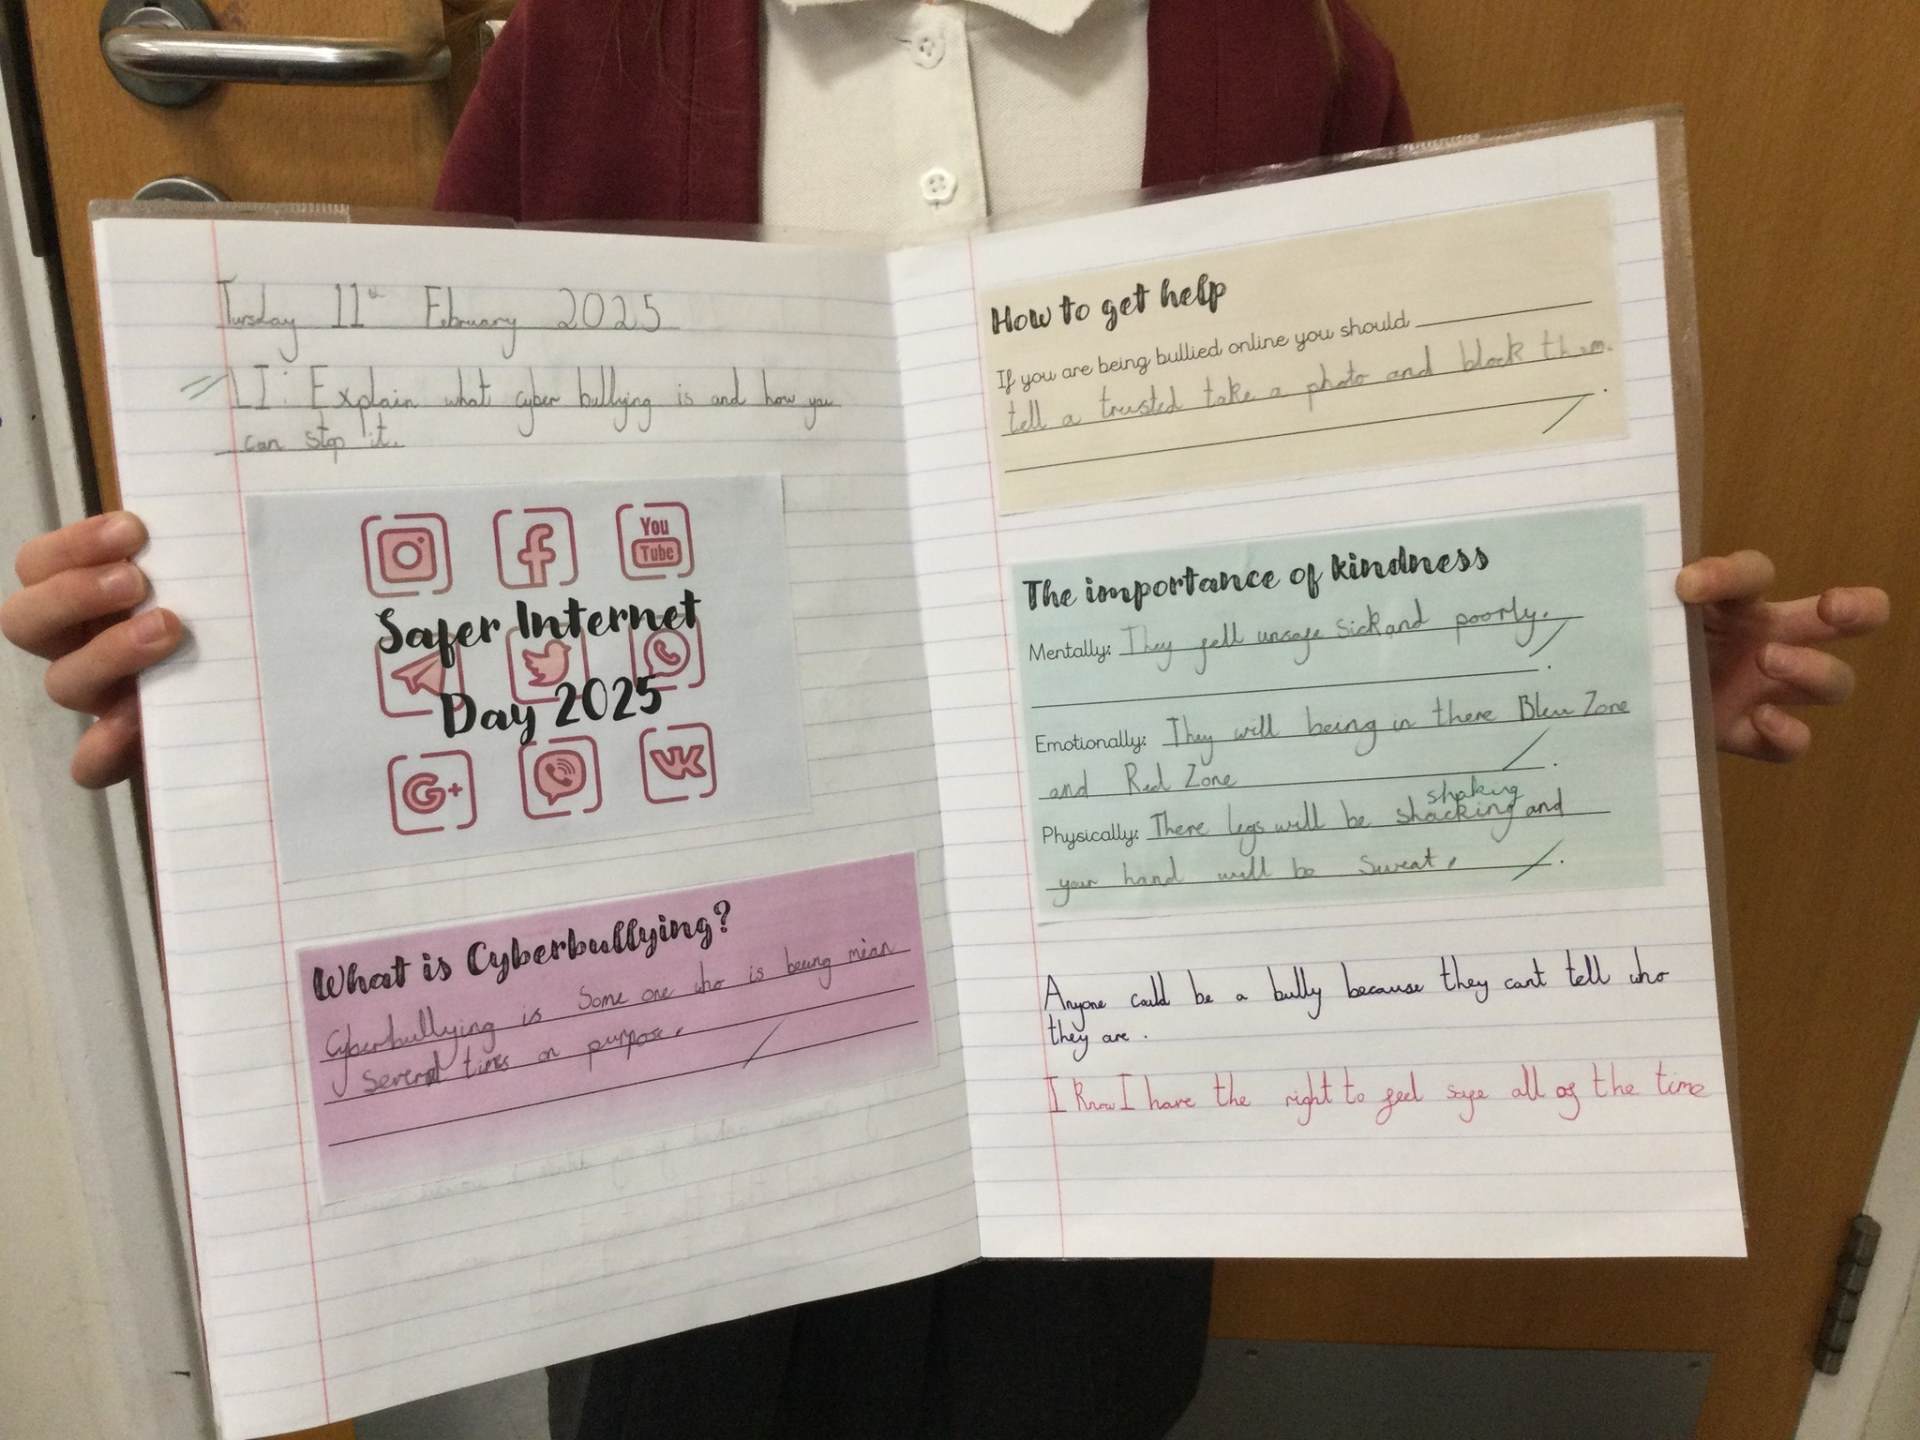 Tursday 11th February 2025
LI: Explain what cyber bullying is and how you
can stop it.
You
Tube
Safer Internet
Day 2025
G+
What is Cyberbullying?
Cyberbullying is Some one who is being mean
several times on purpose.
How to get help
If you are being bullied online you should
tell a trusted take a photo and block them.
The importance of kindness
Mentally: They fell unsafe sick and poorly.
Emotionally: They will being in there Bleu Zone
and Red Zone
shaking
Physically: There legs will be shacking and
your hand will be sweat.
Anyone could be a bully because they cant tell who
they are.
I Know I have the right to feel sefe all of the time